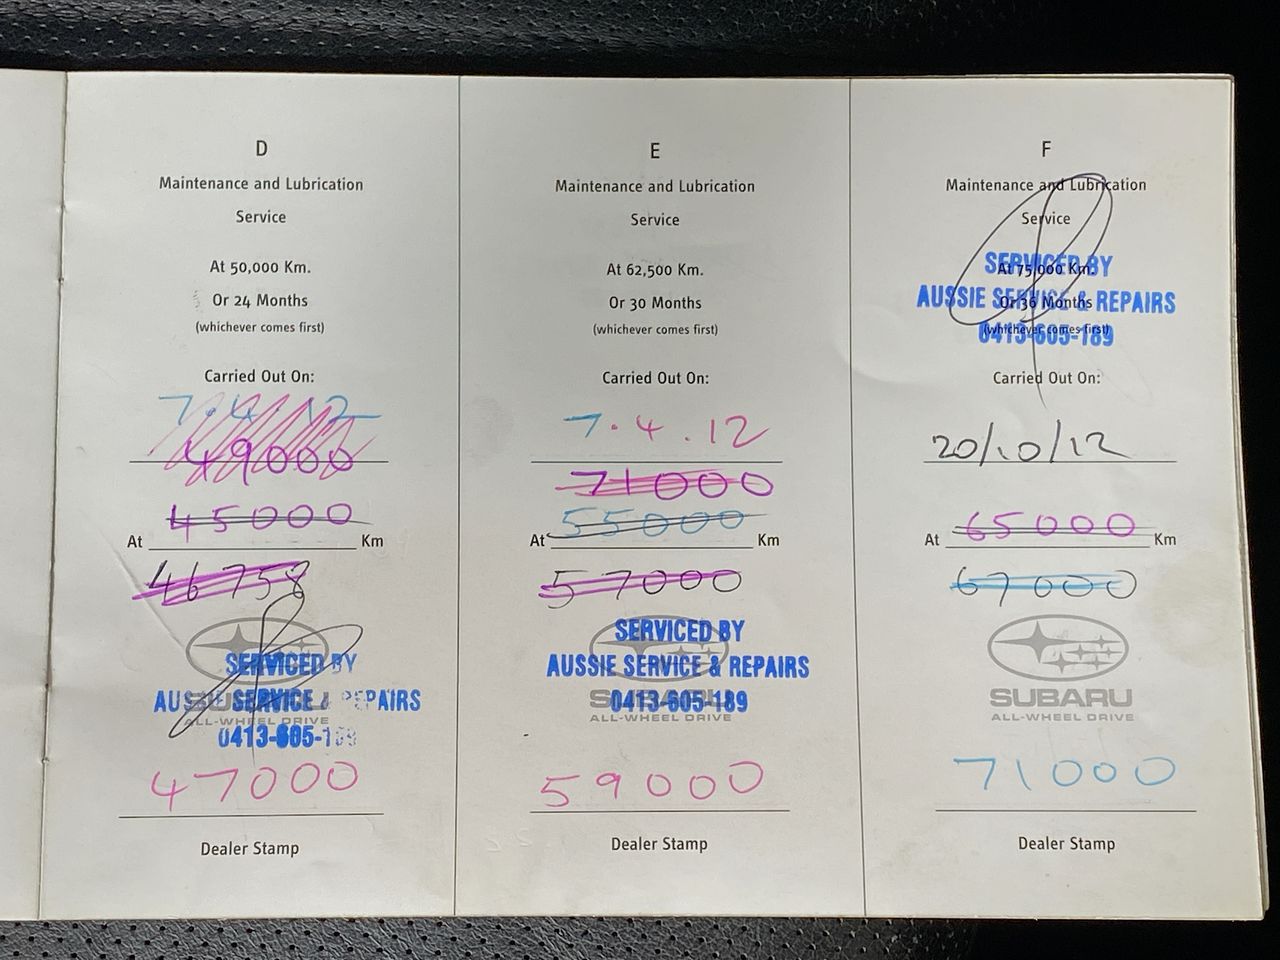 D
Maintenance and Lubrication
Service
At 50,000 Km.
Or 24 Months
(whichever comes first)
Carried Out On:
7.4.12
49000
45000
At Km
46758
SERVICED BY
AUSSIE SERVICE & REPAIRS
0413-605-189
SUBARU
ALL-WHEEL DRIVE
47000
Dealer Stamp
E
Maintenance and Lubrication
Service
At 62,500 Km.
Or 30 Months
(whichever comes first)
Carried Out On:
7.4.12
71000
55000
At Km
57000
SERVICED BY
AUSSIE SERVICE & REPAIRS
0413-605-189
SUBARU
ALL-WHEEL DRIVE
59000
Dealer Stamp
F
Maintenance and Lubrication
Service
SERVICED BY
At 75,000 Km.
AUSSIE SERVICE & REPAIRS
Or 36 Months
0413-605-189
(whichever comes first)
Carried Out On:
20/10/12
65000
At Km
67000
SUBARU
ALL-WHEEL DRIVE
71000
Dealer Stamp